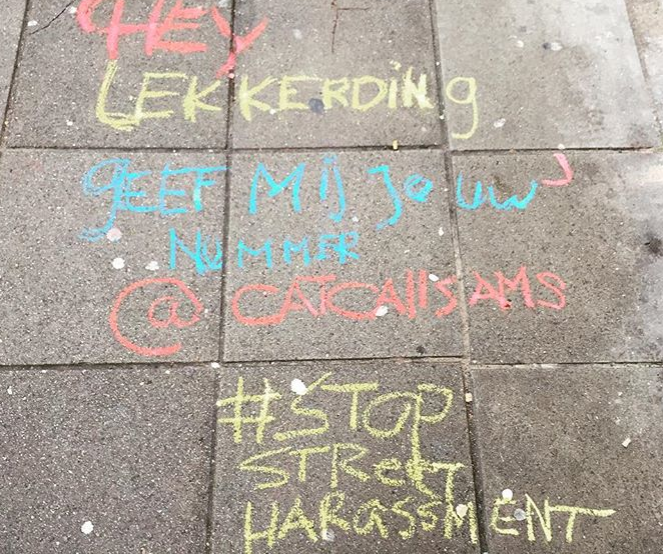 HEY
LEKKERDING
GEEF MIJ JOUW
NUMMER
@CATCAllSAMS
#STOP
STREET
HARASSMENT